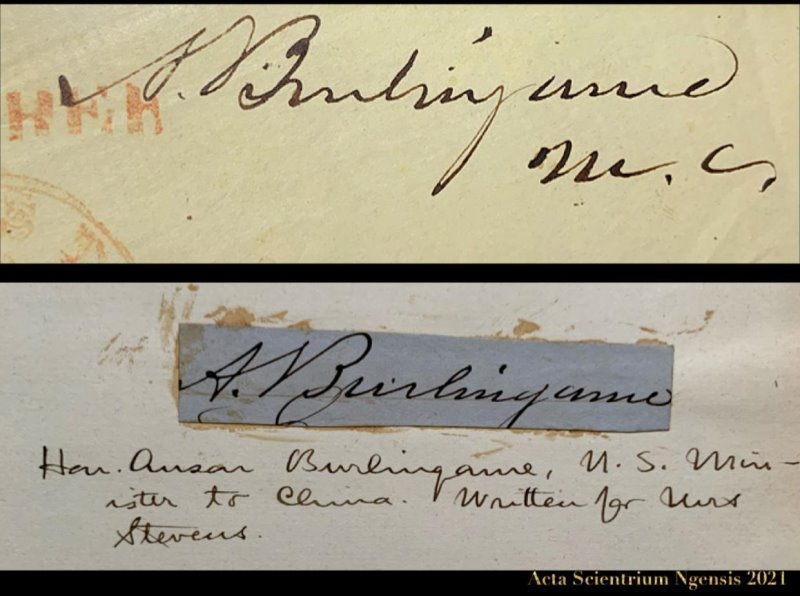 A. Burlingame
M. C.
A. Burlingame
Hon. Anson Burlingame, U. S. Min-
ister to China. Written for Mrs
Stevens.
Acta Scientrium Ngensis 2021